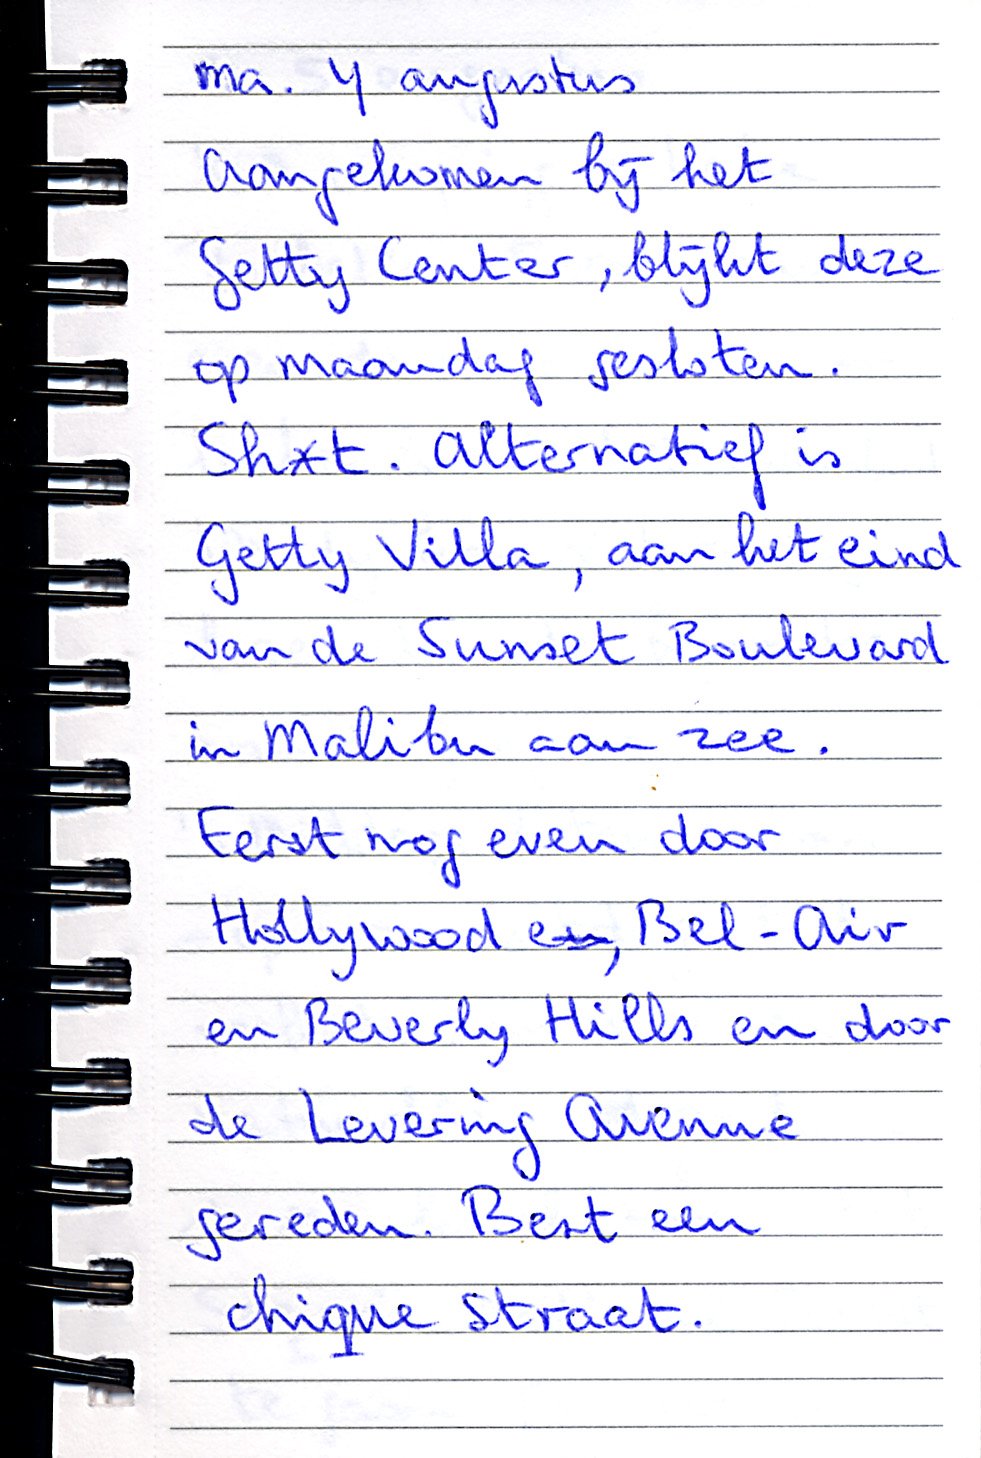 ma. 4 augustus
Aangekomen bij het
Getty Center, blijkt deze
op maandag gesloten.
Sh*t. Alternatief is
Getty Villa, aan het eind
van de Sunset Boulevard
in Malibu aan zee.
Eerst nog even door
Hollywood en, Bel-Air
en Beverly Hills en door
de Levering Avenue
gereden. Best een
chique straat.